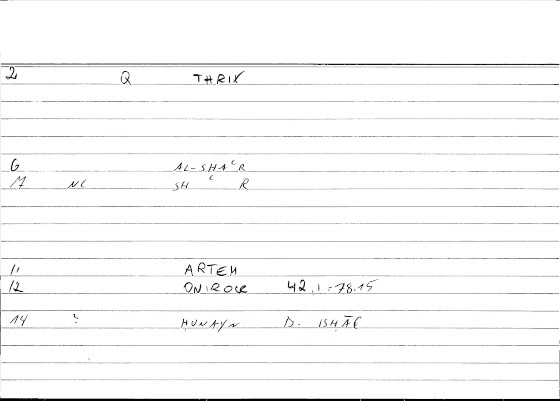 2 Q THRIX
6 AL-SHAʿR
17 NC SH ʿ R
11 ARTEM
12 ONIROCR 42,1 = 78.15
14 ? ḤUNAYN B. ISḤĀḲ